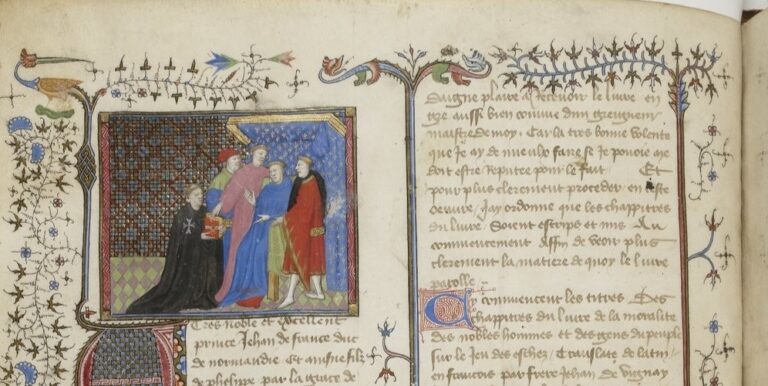 Tres noble et excellent
prince Jehan de france duc
de normandie Et aisne filz
de phelippe par la grace de
daigne plaire a recevoir le livre en
gre aussi bien comme dun greigneur
maistre de moy. Car la tres bonne volente
que Je ay de mieulx faire se Je pouoie me
doit estre reputee pour le fait Et
pour plus clerement proceder en ceste
oeuvre Jay ordonne que les chappitres
du livre Soient escrips et mis Au
commencement Affin de veoir plus
clerement la matiere de quoy le livre
parolle.
Cy commencent les titres Des
chappitres du livre de la moralite
des nobles hommes et des gens du peuple
sur le Jeu des eschez Translate de latin
en francois par frere Jehan de vignay